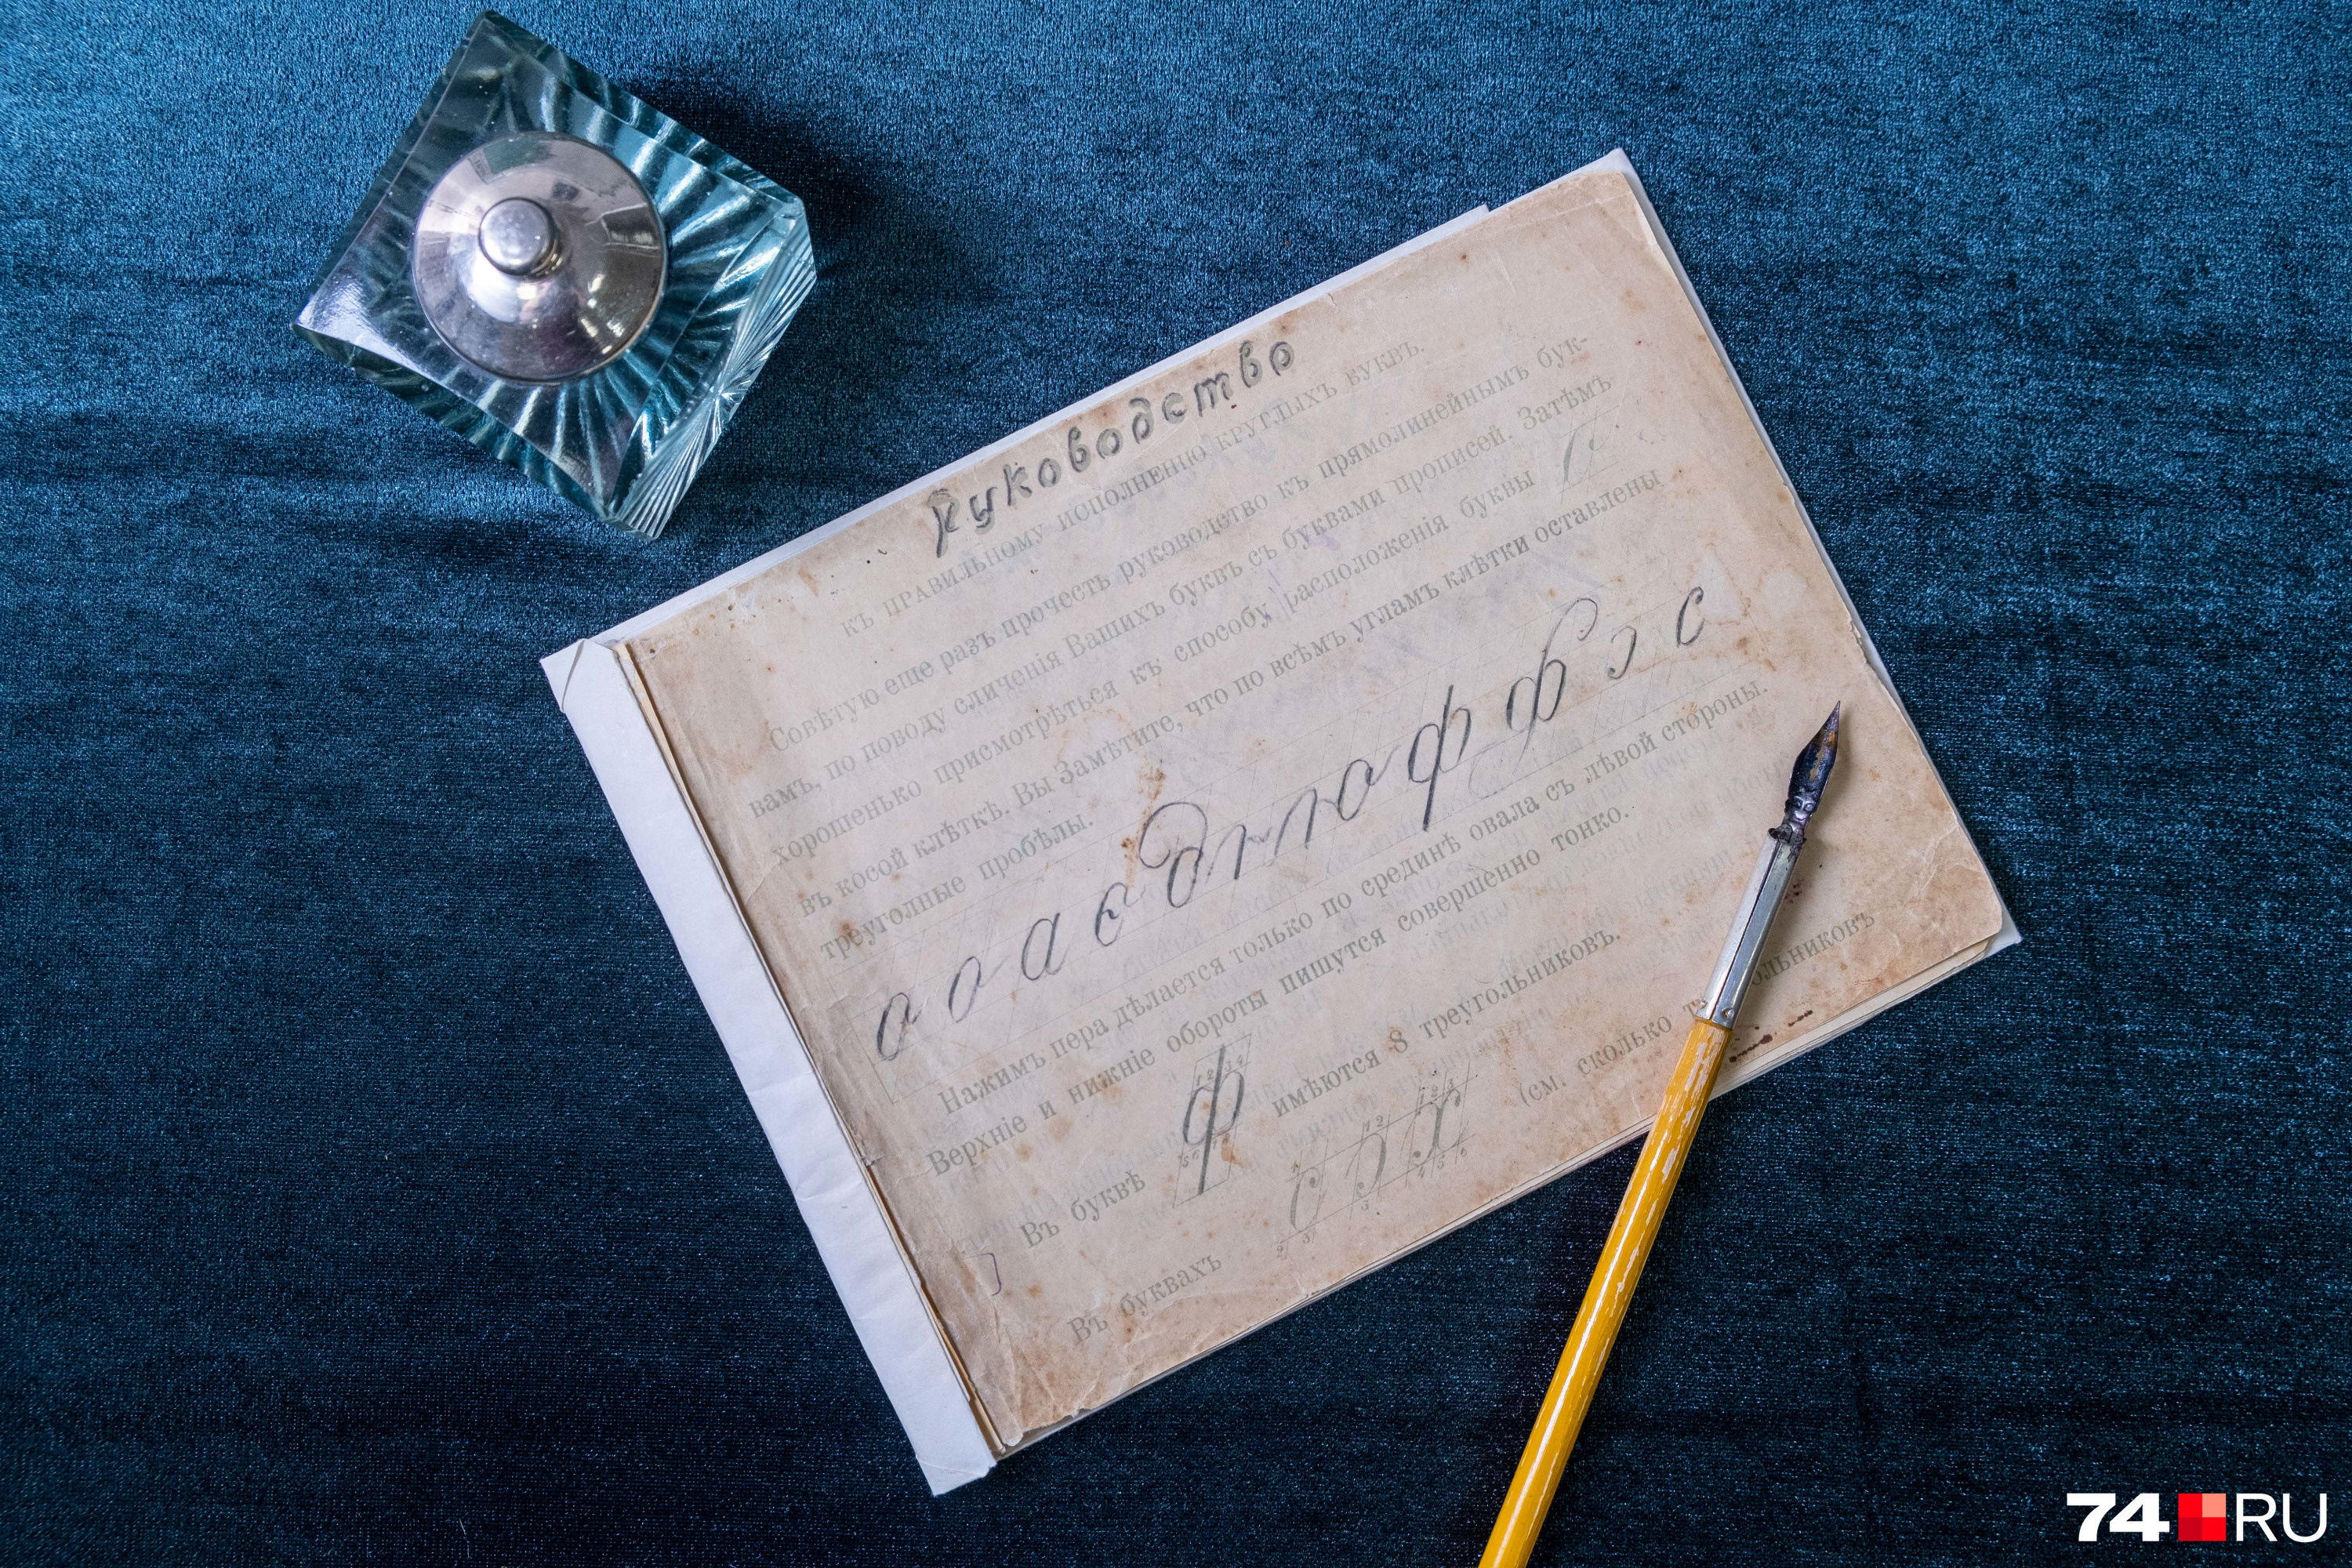 Руководство
КЪ ПРАВИЛЬНОМУ ИСПОЛНЕНІЮ КРУГЛЫХЪ БУКВЪ.
Совѣтую еще разъ прочесть руководство къ прямолинейнымъ бук-
вамъ, по поводу сличенія Вашихъ буквъ съ буквами прописей. Затѣмъ
хорошенько присмотрѣться къ способу расположенія буквы
въ косой клѣткѣ. Вы Замѣтите, что по всѣмъ угламъ клѣтки оставлены
треуголные пробѣлы.
Нажимъ пера дѣлается только по срединѣ овала съ лѣвой стороны.
Верхніе и нижніе обороты пишутся совершенно тонко.
Въ буквѣ ф имѣются 8 треугольниковъ.
Въ буквахъ (см. сколько
74 RU